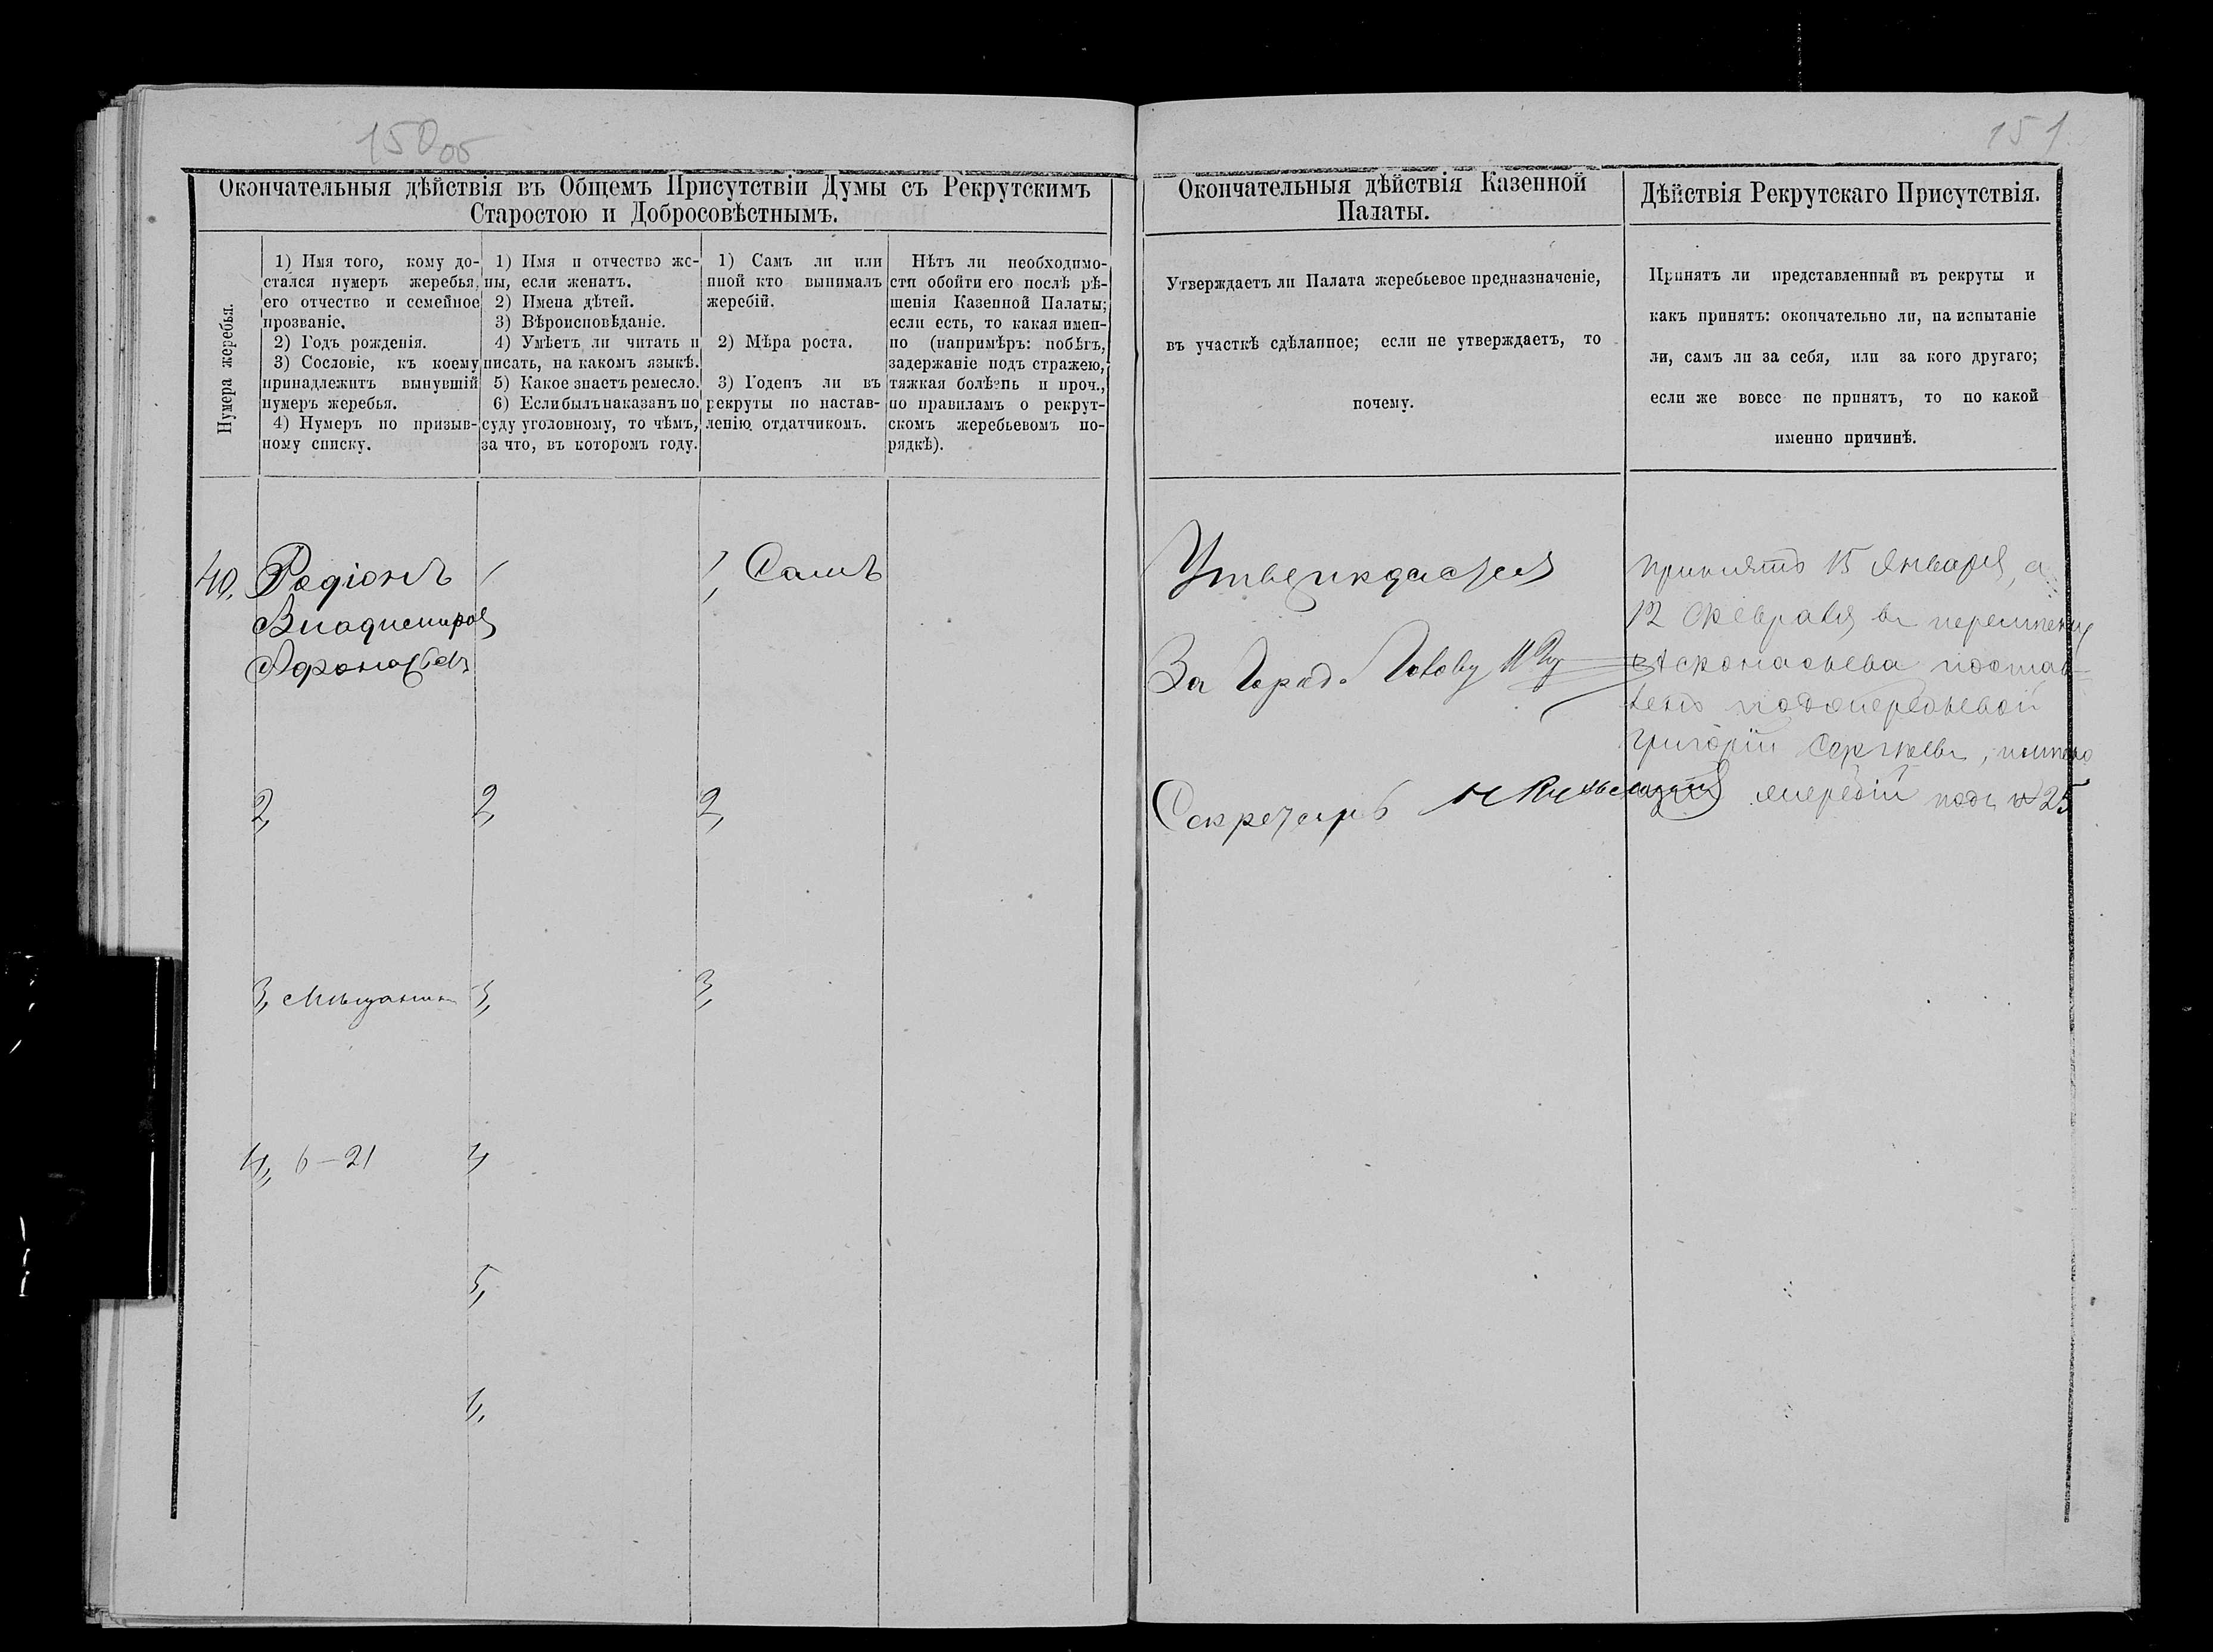 150 об
Окончательныя дѣйствія въ Общемъ Присутствіи Думы съ Рекрутскимъ
Старостою и Добросовѣстнымъ.
Нумера жеребья.
1) Имя того, кому до-
стался нумеръ жеребья,
его отчество и семейное
прозваніе.
2) Годъ рожденія.
3) Сословіе, къ коему
принадлежитъ вынувшій
нумеръ жеребья.
4) Нумеръ по призыв-
ному списку.
1) Имя и отчество же-
ны, если женатъ.
2) Имена дѣтей.
3) Вѣроисповѣданіе.
4) Умѣетъ ли читать и
писать, на какомъ языкѣ.
5) Какое знаетъ ремесло.
6) Если былъ наказанъ по
суду уголовному, то чѣмъ,
за что, въ которомъ году.
1) Самъ ли или
иной кто вынималъ
жеребій.
2) Мѣра роста.
3) Годенъ ли въ
рекруты по настав-
ленію отдатчикомъ.
Нѣтъ ли необходимо-
сти обойти его послѣ рѣ-
шенія Казенной Палаты;
если есть, то какая имен-
но (напримѣръ: побѣгъ,
задержаніе подъ стражею,
тяжкая болѣзнь и проч.,
по правиламъ о рекрут-
скомъ жеребьевомъ по-
рядкѣ).
40, Радіонъ
Владимировъ
Афонасьевъ
2,
3, Мѣщанинъ
4, 6–21
1
2,
3,
4
5,
6,
1, Самъ
2,
3,
151
Окончательныя дѣйствія Казенной
Палаты.
Утверждаетъ ли Палата жеребьевое предназначеніе,
въ участкѣ сдѣланное; если не утверждаетъ, то
почему.
Утверждается
За Город. Голову
Секретарь
Дѣйствія Рекрутскаго Присутствія.
Принятъ ли представленный въ рекруты и
какъ принятъ: окончательно ли, на испытаніе
ли, самъ ли за себя, или за кого другаго;
если же вовсе не принятъ, то по какой
именно причинѣ.
принятъ 15 Января, а
12 Февраля въ перемѣну
Афонасьева постав-
ленъ поджеребьевой
Григорій Сергѣевъ,
жеребій подъ № 25